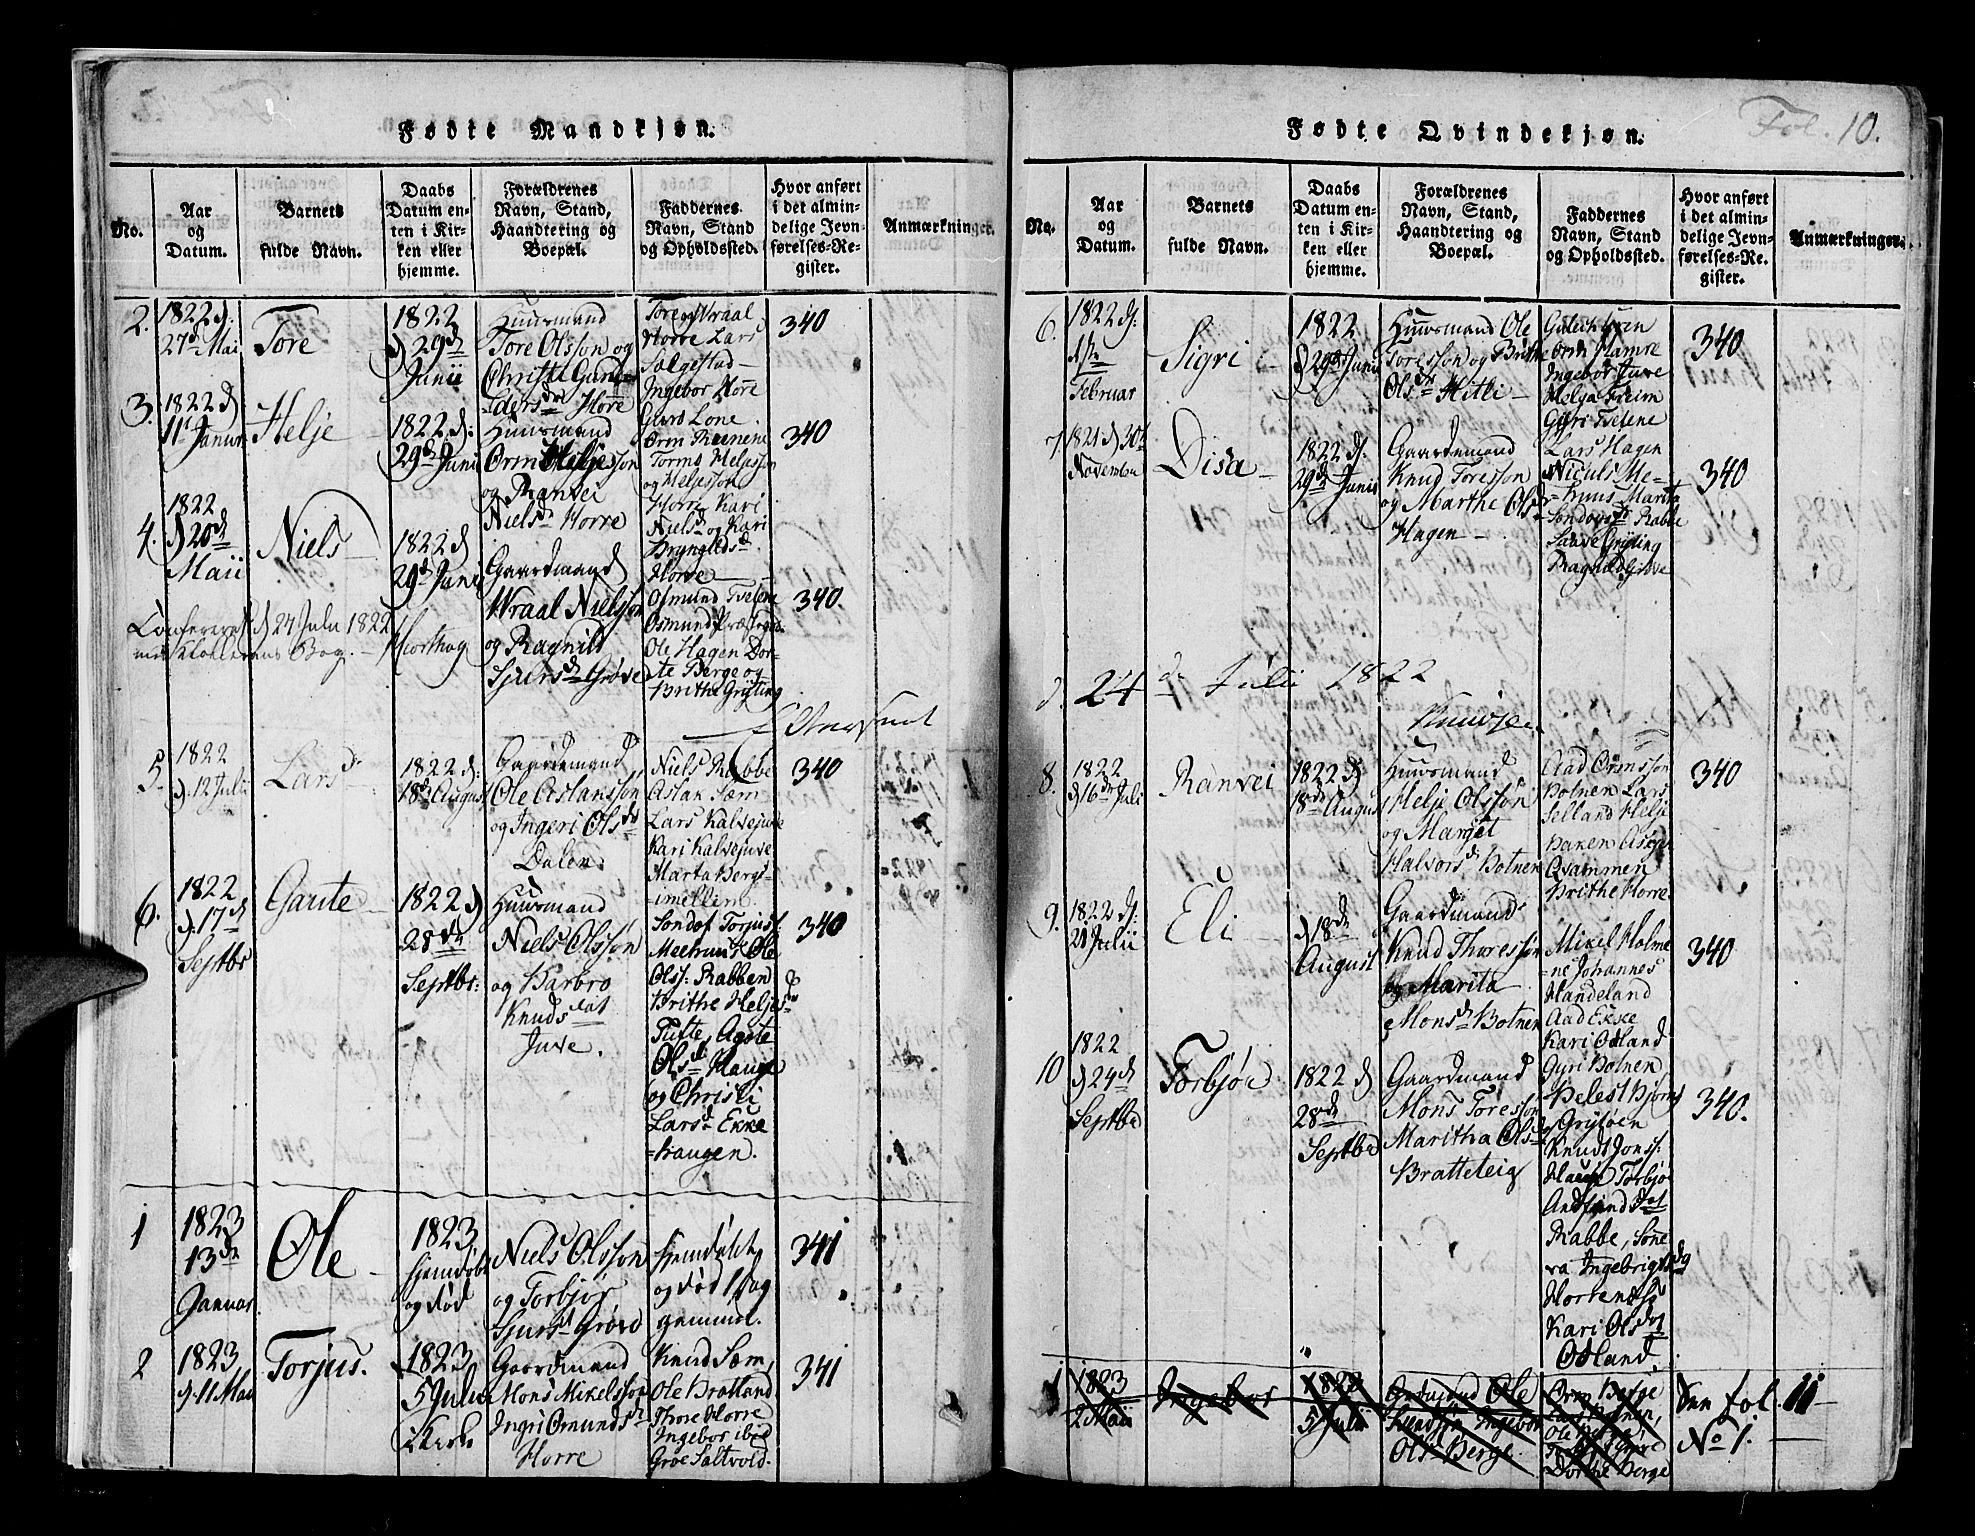 Fødte Mandkjøn.
No.
Aar
og
Datum.
Barnets
fulde Navn.
Daabs
Datum en-
ten i Kir-
ken eller
hjemme.
Forældrenes
Navn, Stand,
Haandtering og
Boepæl.
Faddernes
Navn, Stand
og Opholdssted.
Hvor anført
i det almin-
delige Jevn-
førelses-Re-
gister.
Anmærkninger.
2.
1822 d.
27d Mai
Tore
1822
d 29de
Junii
Huusmand
Tore Olsson og
Christi Gun
dersdr Horre
Tore Wraal
Horre Lars
Salgestad
Ingebor Horre
340
3.
1822 d
11t Januar
Helje
1822 d.
29de Juni
Huusmand
Orm Heljesson
og Ranvei
Nielsd Horre
Guro Lone
Orm Reinene
Tormo Heljesson
og Heljesson
Horre Kari
Nielsd og Kari
Brynyledsd
Horre
340
4.
1822
d 20de
Maii
Niels
1822 d
29de Juni
Gaardmand
Wraal Nielsson
og Ragnild
Sjursd Grøve
Osmund Tvetene
Osmund
Ole Hagen Dor-
te Berge og
Brithe Gryting
340.
Confereret d 24 Julii 1822
med Klokkerens Bog.
5.
1822
d. 12 Juli
Lars
1822 d:
18de August
Gaardemand
Ole Aslansson
og Ingeri Olsdr
Dalen
Niels Rabbe
Aslak Sæm
Lars Kalvejuve
Kari Kalvejuve
Marta Bergs-
imellim
340
6.
1822
d. 17d
Septbr
Gaute
1822 d
28de
Septbr:
Huusmand
Niels Olsson
og Barbro
Knudsdat
Juve.
Sondof Torjuss:
Meehuus Ole
Olss: Rabben
Brithe Heljesdr
Tufte, Agote
Olsd Hauge
og Christi
Larsd Ekke
haugen.
340
1
1823
13de
Januar
Ole
1823
hjemdøbt
og død
Niels Olsson
og Torbjør
Sjursd Grøvo
hjemdøbt
og død 1 dag
gammel.
341
2
1823
d. 11 Mai
Torjus.
1823
5 Julii
i Kirke
Gaardmand
Mons Mikelsson
Ingri Omundsdr
Horre
Knud Sæm,
Ole Bratland
Thore Horre
Ingebor ibid
Groe Saltvold.
341
Fødte Qvindekjøn.
Fol. 10.
No.
Aar
og
Datum.
Barnets
fulde Navn.
Daabs
Datum en-
ten i Kir-
ken eller
hjemme.
Forældrenes
Navn, Stand,
Haandtering og
Boepæl.
Faddernes
Navn, Stand
og Opholdssted.
Hvor anført
i det almin-
delige Jevn-
førelses-Re-
gister.
Anmærkninger.
6.
1822 d.
1ste
Februar
Sigri
1822
d 29de Junii
Huusmand Ole
Toresson og Brithe
Olsdr Hitli
Orm Hamre
Ingebor Juve
Helga Freim
Gyri Tvetene
340
7
1821 d 30t
Novembr
Disa
1822 d.
29de Junii
Gaardemand
Knud Toresson
og Marthe Olsd
Hagen
Lars Hagen
Niculs Me-
huus Marita
Sondovsdr Rabbe
Saave Gryting
Ragnild Grøve
340
d. 24de Julii 1822
8.
1822
d 16de Juli
Ranvei
1822 d
18de August
Huusmand
Helje Olsson
og Marget
Halvorsd Botnen
Aad Ormsson
Botnen Lars
Selland Helje
Baken Asger
Osammen
Brithe Horre
340
9.
1822 d.
21 Julii
Eli
d 18de
August
Gaardmand
Knud Thoresson
og Marita
Monsd Botnen
Mikel Holme
ne Johannes
Handeland
Aad Ekke
Kari Odland
Gyri Botnen
340
10
1822
d 24d
Septbr
Torbjør
1822 d
28de
Septbr
Gaardmand
Mons Toresson
Maritha Olsd
Bratteteig
Helest Bjorns
Gryløen
Knud Jonss:
Hauge Torbjør
Amund dat
Rabbe, Sone
va Ingebrigtsdg
Hortens
Kari Olsdg
Odland.
340.
1
1823
2 Maii
Ingebor
1823
5 Juli
Ole
Ingebor
Olsd Berge
Orm Berge
Lars Botnen,
Ole Berge,
Grøve
Dorthe Berge
See fol. 11
No 1.